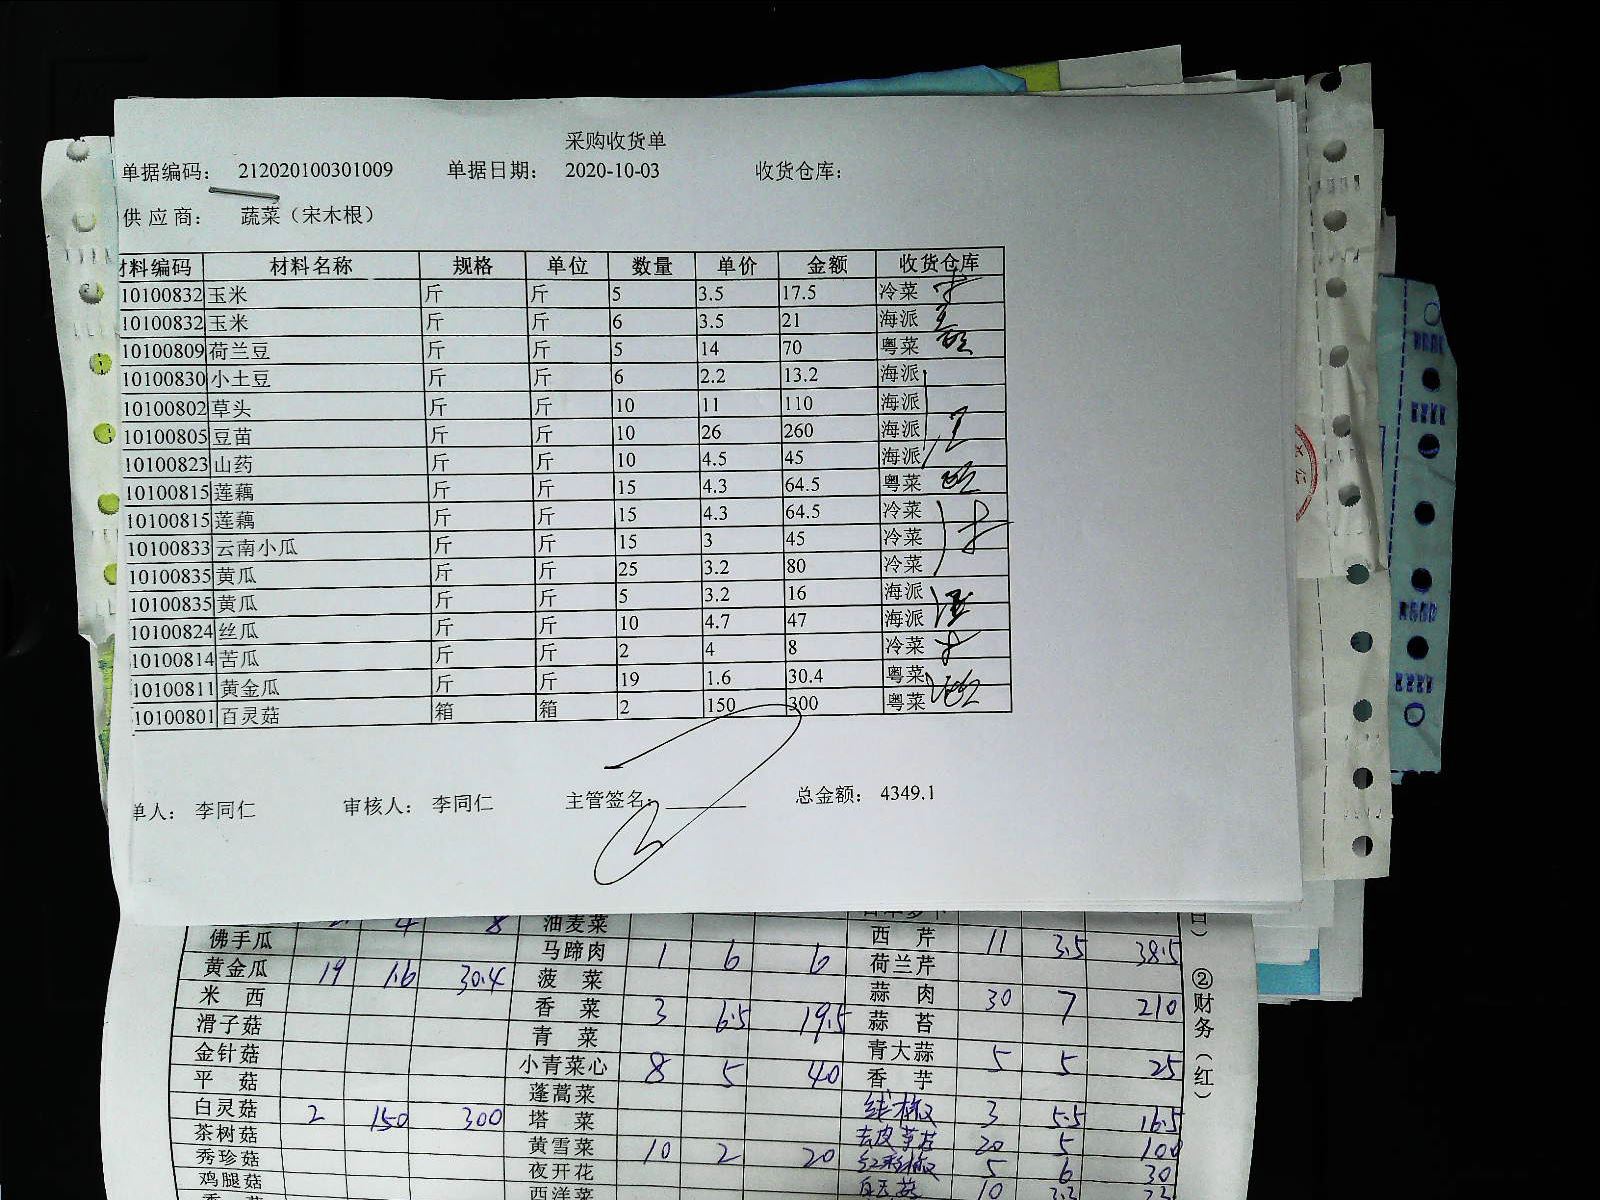 采购收货单
单据编码： 212020100301009 单据日期： 2020-10-03 收货仓库：
供应商： 蔬菜（宋木根）
材料编码 材料名称 规格 单位 数量 单价 金额 收货仓库
10100832 玉米 斤 斤 5 3.5 17.5 冷菜
10100832 玉米 斤 斤 6 3.5 21 海派
10100809 荷兰豆 斤 斤 5 14 70 粤菜
10100830 小土豆 斤 斤 6 2.2 13.2 海派
10100802 草头 斤 斤 10 11 110 海派
10100805 豆苗 斤 斤 10 26 260 海派
10100823 山药 斤 斤 10 4.5 45 海派
10100815 莲藕 斤 斤 15 4.3 64.5 粤菜
10100815 莲藕 斤 斤 15 4.3 64.5 冷菜
10100833 云南小瓜 斤 斤 15 3 45 冷菜
10100835 黄瓜 斤 斤 25 3.2 80 冷菜
10100835 黄瓜 斤 斤 5 3.2 16 海派
10100824 丝瓜 斤 斤 10 4.7 47 海派
10100814 苦瓜 斤 斤 2 4 8 冷菜
10100811 黄金瓜 斤 斤 19 1.6 30.4 粤菜
10100801 百灵菇 箱 箱 2 150 300 粤菜
单人： 李同仁 审核人： 李同仁 主管签名： 总金额： 4349.1
4 8 油麦菜
佛手瓜 马蹄肉 1 6 6 西芹 11 3.5 38.5
黄金瓜 19 1.6 30.4 菠菜 荷兰芹
米西 香菜 3 6.5 19.5 蒜肉 30 7 210
滑子菇 青菜 蒜苔
金针菇 小青菜心 8 5 40 青大蒜 5 5 25
平菇 蓬蒿菜 香芋
白灵菇 2 150 300 塔菜 线椒 3 5.5 16.5
茶树菇 黄雪菜 10 2 20 去皮 20 5 100
秀珍菇 夜开花 红彩椒 5 6 30
鸡腿菇 西洋菜 10
②财务（红）